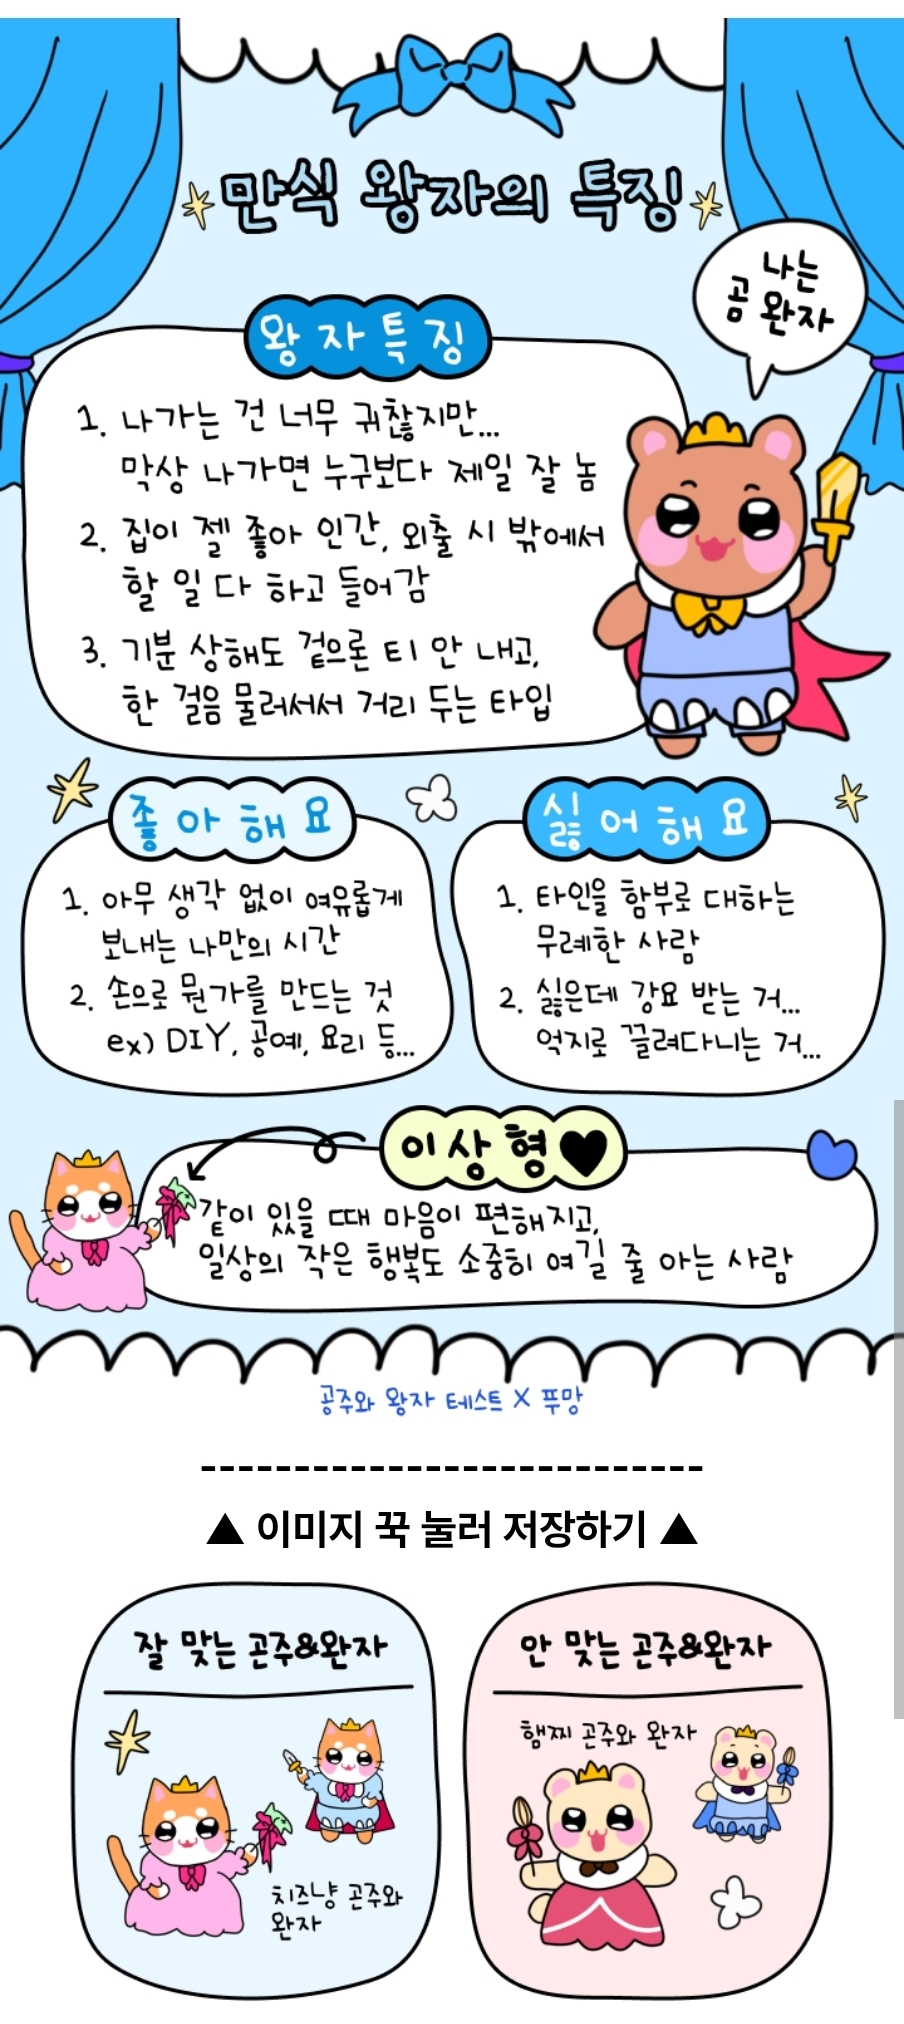 만식 왕자의 특징
나는
곰 완자
왕자특징
1. 나가는 건 너무 귀찮지만...
막상 나가면 누구보다 제일 잘 놈
2. 집이 젤 좋아 인간, 외출 시 밖에서
할 일 다 하고 들어감
3. 기분 상해도 겉으론 티 안 내고,
한 걸음 물러서서 거리 두는 타입
좋아해요
1. 아무 생각 없이 여유롭게
보내는 나만의 시간
2. 손으로 뭔가를 만드는 것
ex) DIY, 공예, 요리 등...
싫어해요
1. 타인을 함부로 대하는
무례한 사람
2. 싫은데 강요 받는 거...
억지로 끌려다니는 거...
이상형♥
같이 있을 때 마음이 편해지고,
일상의 작은 행복도 소중히 여길 줄 아는 사람
공주와 왕자 테스트 X 푸망
---------------------------
▲ 이미지 꾹 눌러 저장하기 ▲
잘 맞는 곤주&완자
치즈냥 곤주와
완자
안 맞는 곤주&완자
햄찌 곤주와 완자